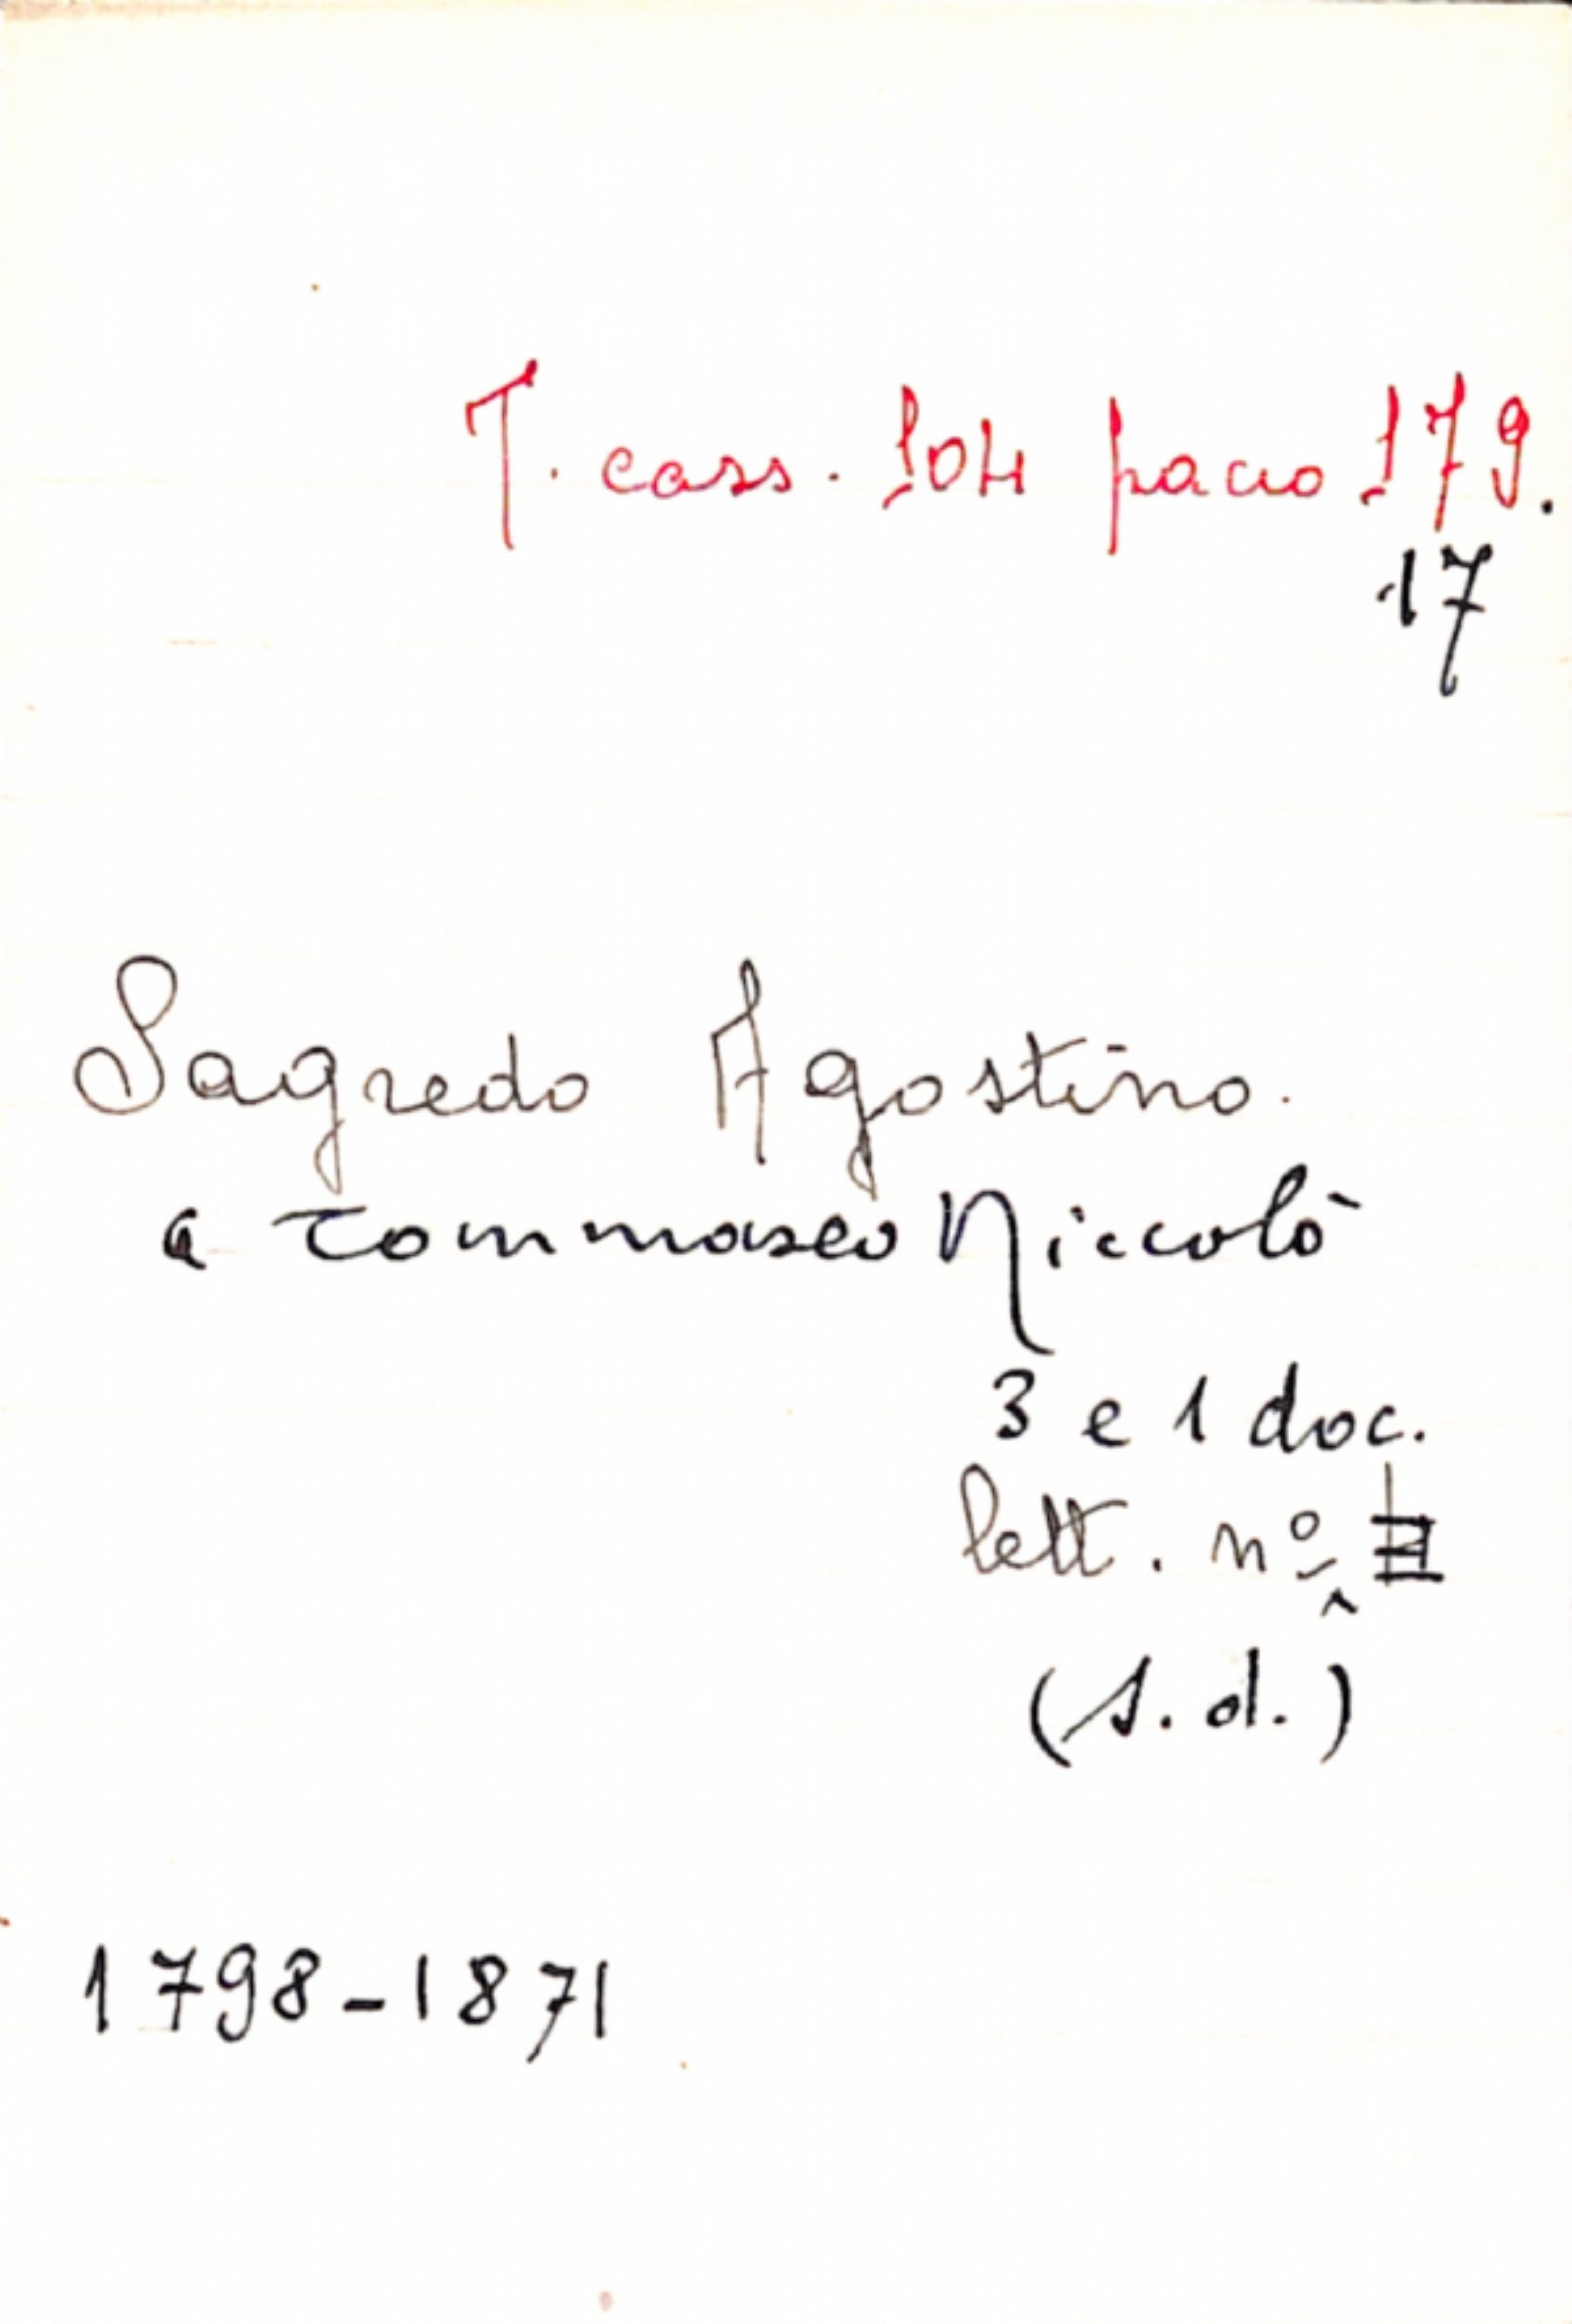 T. cass. 104 pacco 179.
17
Sagredo Agostino.
a Tommaseo Niccolò
3 e 1 doc.
lett. nº
(s.d.)
1798-1871